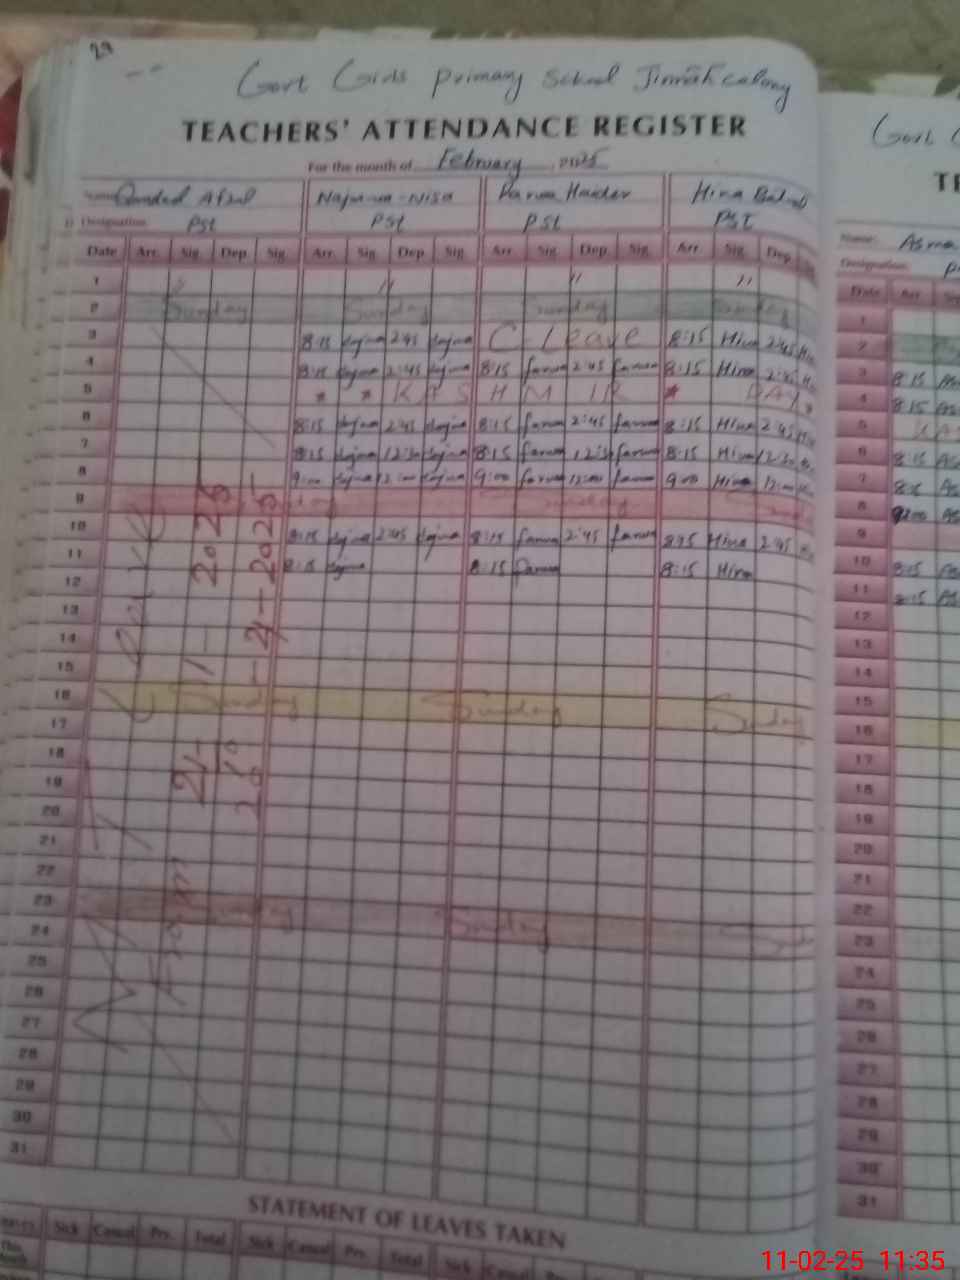 29
Govt Girls Primary School Jinnah colony
TEACHERS' ATTENDANCE REGISTER
For the month of February, 2025
Name Afzal Najm-u-Nisa Farwa Haider Hina
Designation PST PST PST PST
Date Arr. Sig. Dep. Sig. Arr. Sig. Dep. Sig. Arr. Sig. Dep. Sig. Arr. Sig. Dep.
1 " " " "
2 Sunday Sunday Sunday Sunday
3 8:15 Najma 2:45 Najma C-Leave 8:15 Hina 2:45
4 8:15 Najma 2:45 Najma 8:15 farwa 2:45 farwa 8:15 Hina 2:45
5 * * KASHMIR * DAY
6 8:15 Najma 2:45 Najma 8:15 farwa 2:45 farwa 8:15 Hina 2:45
7 8:15 Najma 12:30 Najma 8:15 farwa 12:30 farwa 8:15 Hina 12:30
8 9:00 Najma 12:00 Najma 9:00 farwa 12:00 farwa 9:00 Hina 12:00
9 Sunday
10 8:15 Najma 2:45 Najma 8:15 farwa 2:45 farwa 8:15 Hina 2:45
11 8:15 Najma 8:15 farwa 8:15 Hina
12
13
14
15
16 Sunday Sunday Sunday
17
18
19
20
21
22
23 Sunday Sunday
24
25
26
27
28
29
30
31
From
STATEMENT OF LEAVES TAKEN
Sick Casual Prv. Total Sick Casual Prv. Total Sick Casual Prv.
This
Govt
Name: Asma
Designation
Date Arr.
1
2
3 8:15
4 8:15
5
6 8:15
7 8:15
8 9:00
9
10 8:15
11 8:15
12
13
14
15
16
17
18
19
20
21
22
23
24
25
26
27
28
29
30
31
11-02-25 11:35